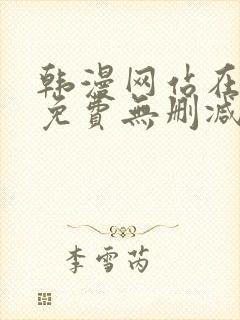 韩漫网站在
免費無删减
李雪芮